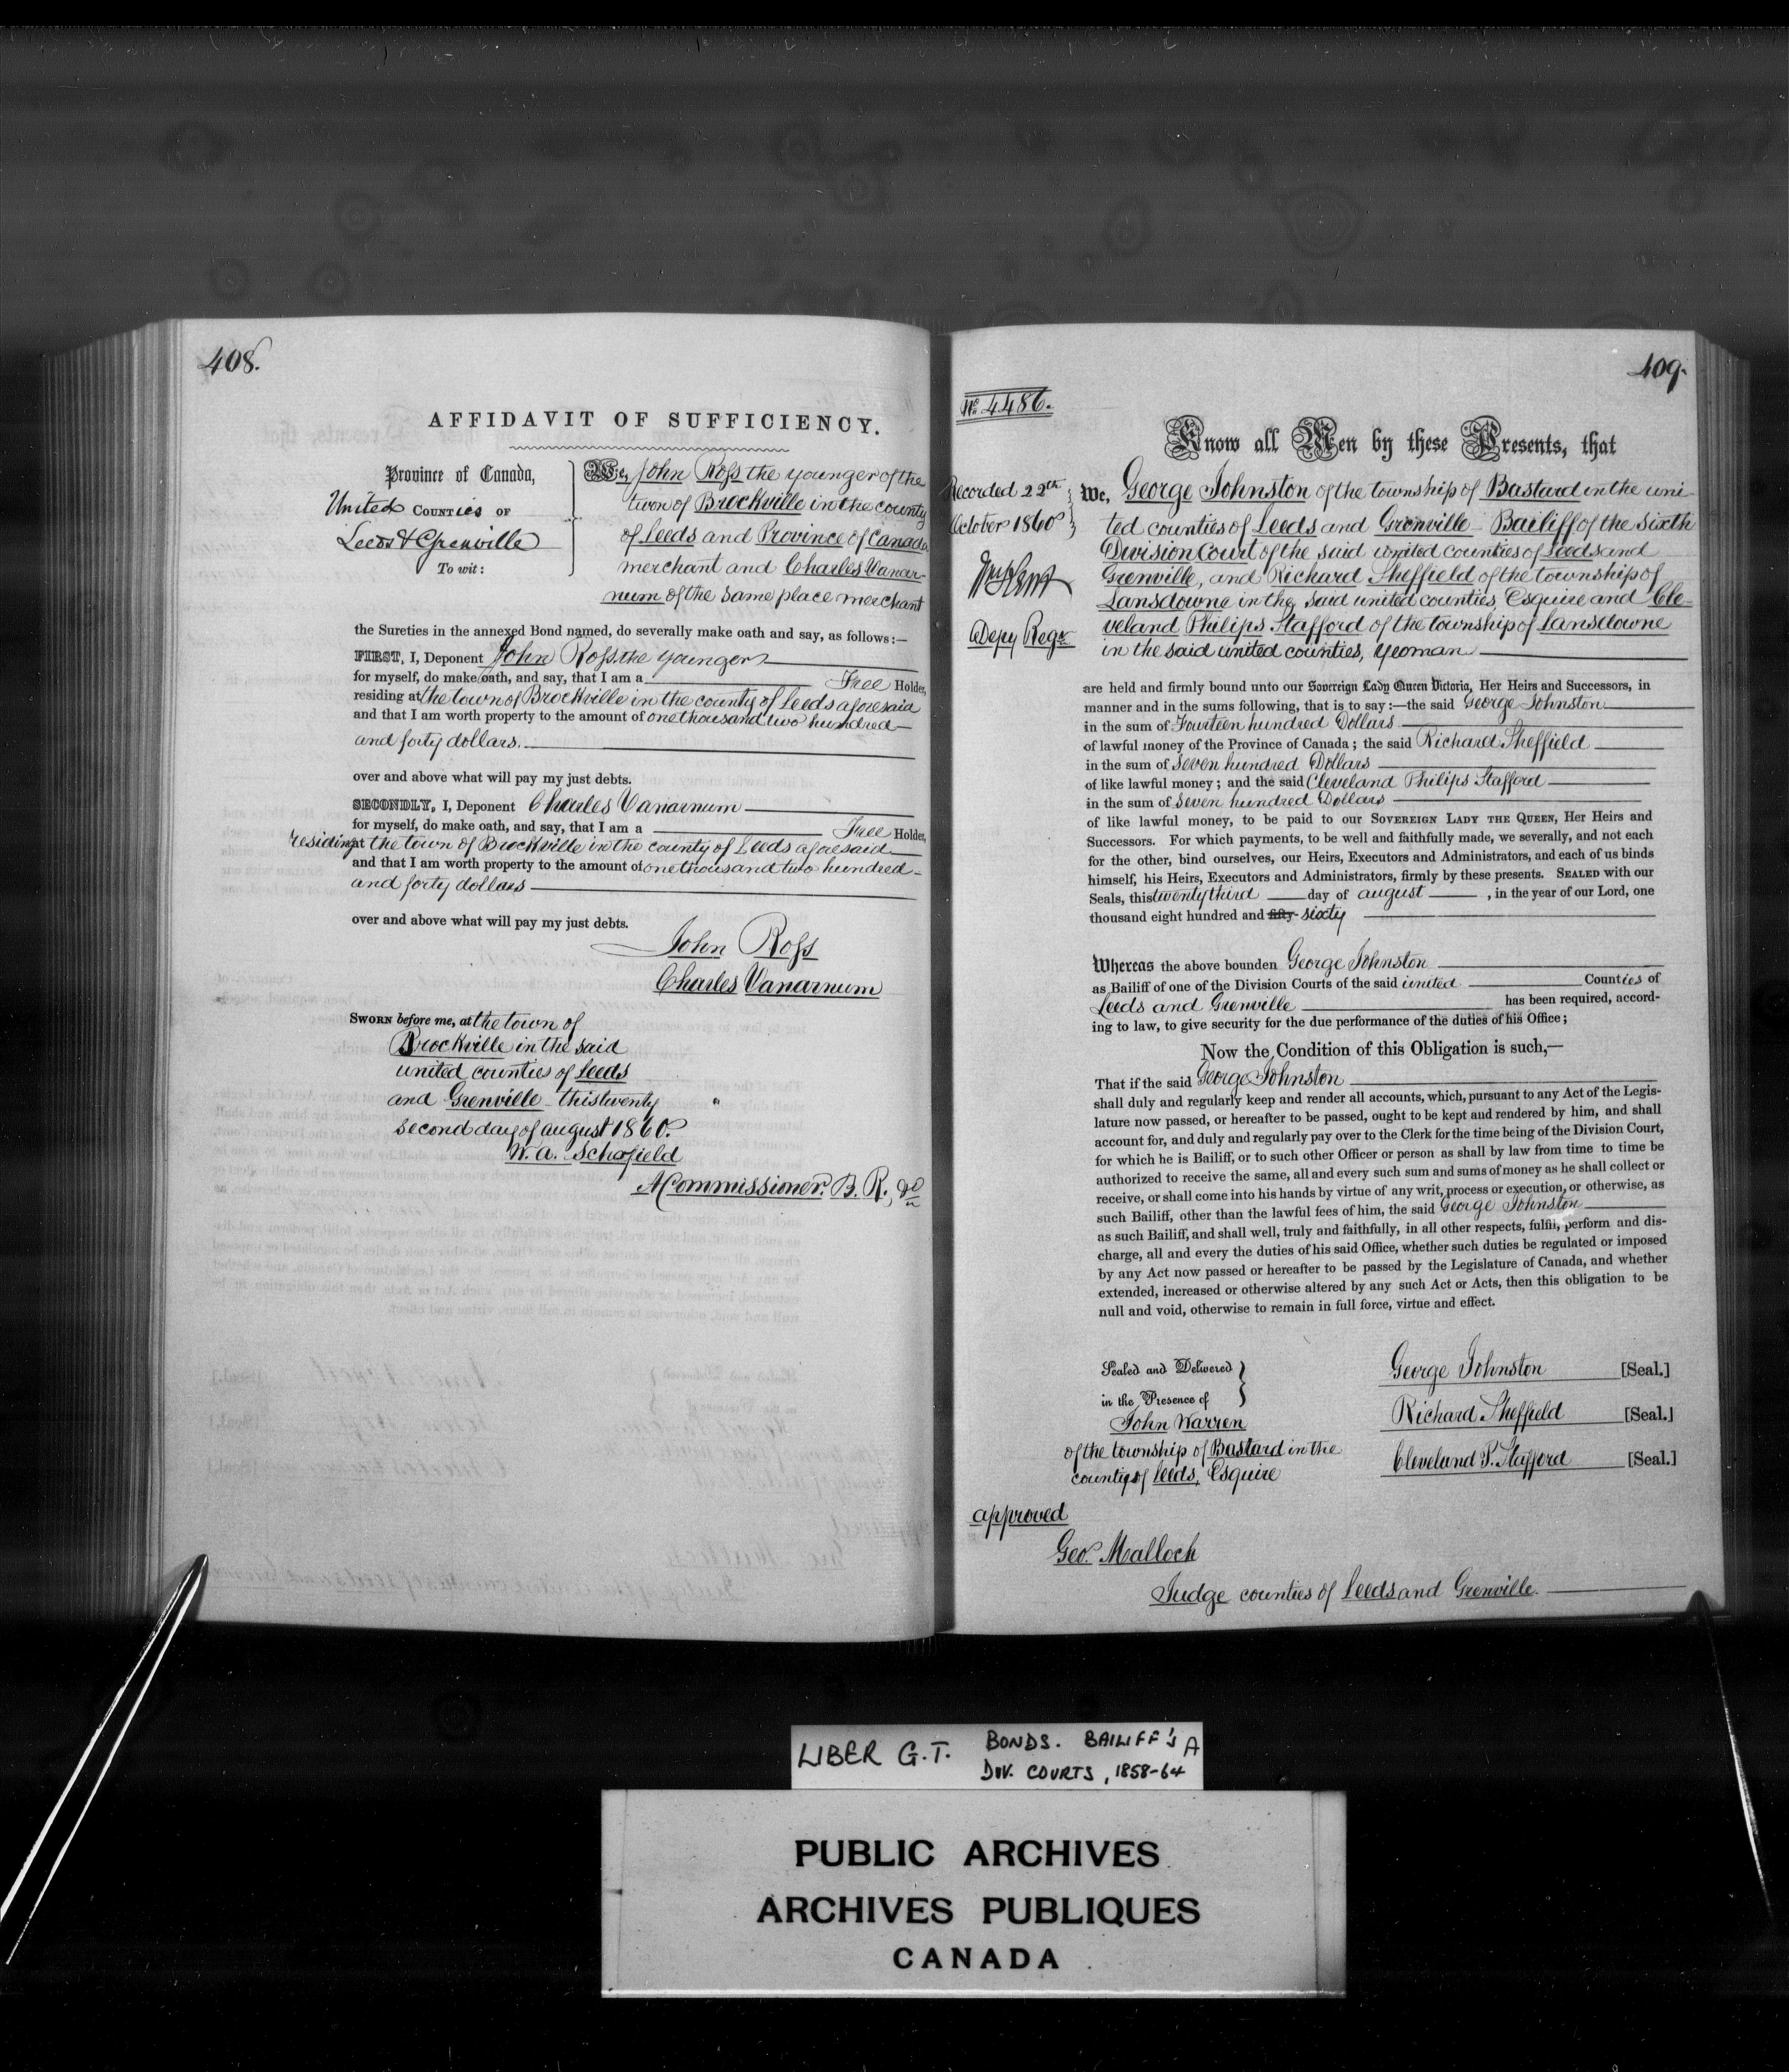 408.
AFFIDAVIT OF SUFFICIENCY.
Province of Canada,
United COUNTies OF
Leeds & Grenville
To wit:
We, John Ross the younger of the
twon of Brockville in the county
of Leeds and Province of Canada
merchant and Charles Vanar-
num of the same place merchant
the Sureties in the annexed Bond named, do severally make oath and say, as follows:—
FIRST, I, Deponent John Ross the younger
for myself, do make oath, and say, that I am a Free Holder,
residing at the town of Brockville in the county of Leeds aforesaid
and that I am worth property to the amount of one thousand two hundred
and forty dollars.
over and above what will pay my just debts.
SECONDLY, I, Deponent Charles Vanarnum
for myself, do make oath, and say, that I am a Free Holder,
residing at the town of Brockville in the county of Leeds aforesaid
and that I am worth property to the amount of one thousand two hundred
and forty dollars
over and above what will pay my just debts.
John Ross
Charles Vanarnum
SWORN before me, at the town of
Brockville in the said
united counties of Leeds
and Grenville this twenty
second day of august 1860.
W. A. Schofield
A Commissioner. B. R.,
409.
No 4486.
Recorded 22th
October 1860
Depy Regr
Know all Men by these Presents, that
We, George Johnston of the township of Bastard in the uni
ted counties of Leeds and Grenville Bailiff of the sixth
Division Court of the said united counties of Leeds and
Grenville, and Richard Sheffield of the township of
Lansdowne in the said united counties, Esquire and Cle-
veland Philips Stafford of the township of Lansdowne
in the said united counties, yeoman
are held and firmly bound unto our Sovereign Lady Queen Victoria, Her Heirs and Successors, in
manner and in the sums following, that is to say:—the said George Johnston
in the sum of Fourteen hundred Dollars
of lawful money of the Province of Canada; the said Richard Sheffield
in the sum of Seven hundred Dollars
of like lawful money; and the said Cleveland Philips Stafford
in the sum of Seven hundred Dollars
of like lawful money, to be paid to our SOVEREIGN LADY THE QUEEN, Her Heirs and
Successors. For which payments, to be well and faithfully made, we severally, and not each
for the other, bind ourselves, our Heirs, Executors and Administrators, and each of us binds
himself, his Heirs, Executors and Administrators, firmly by these presents. SEALED with our
Seals, this twenty third day of august, in the year of our Lord, one
thousand eight hundred and fifty sixty
Whereas the above bounden George Johnston
as Bailiff of one of the Division Courts of the said united Counties of
Leeds and Grenville has been required, accord-
ing to law, to give security for the due performance of the duties of his Office;
Now the Condition of this Obligation is such,—
That if the said George Johnston
shall duly and regularly keep and render all accounts, which, pursuant to any Act of the Legis-
lature now passed, or hereafter to be passed, ought to be kept and rendered by him, and shall
account for, and duly and regularly pay over to the Clerk for the time being of the Division Court,
for which he is Bailiff, or to such other Officer or person as shall by law from time to time be
authorized to receive the same, all and every such sum and sums of money as he shall collect or
receive, or shall come into his hands by virtue of any writ, process or execution, or otherwise, as
such Bailiff, other than the lawful fees of him, the said George Johnston
as such Bailiff, and shall well, truly and faithfully, in all other respects, fulfil, perform and dis-
charge, all and every the duties of his said Office, whether such duties be regulated or imposed
by any Act now passed or hereafter to be passed by the Legislature of Canada, and whether
extended, increased or otherwise altered by any such Act or Acts, then this obligation to be
null and void, otherwise to remain in full force, virtue and effect.
Sealed and Delivered
in the Presence of
John Warren
of the township of Bastard in the
county of Leeds, Esquire
George Johnston [Seal.]
Richard Sheffield [Seal.]
Cleveland P. Stafford [Seal.]
approved
Geo. Malloch
Judge counties of Leeds and Grenville.
LIBER G.T. BONDS. BAILIFF'S A
DIV. COURTS, 1858-64
PUBLIC ARCHIVES
ARCHIVES PUBLIQUES
CANADA